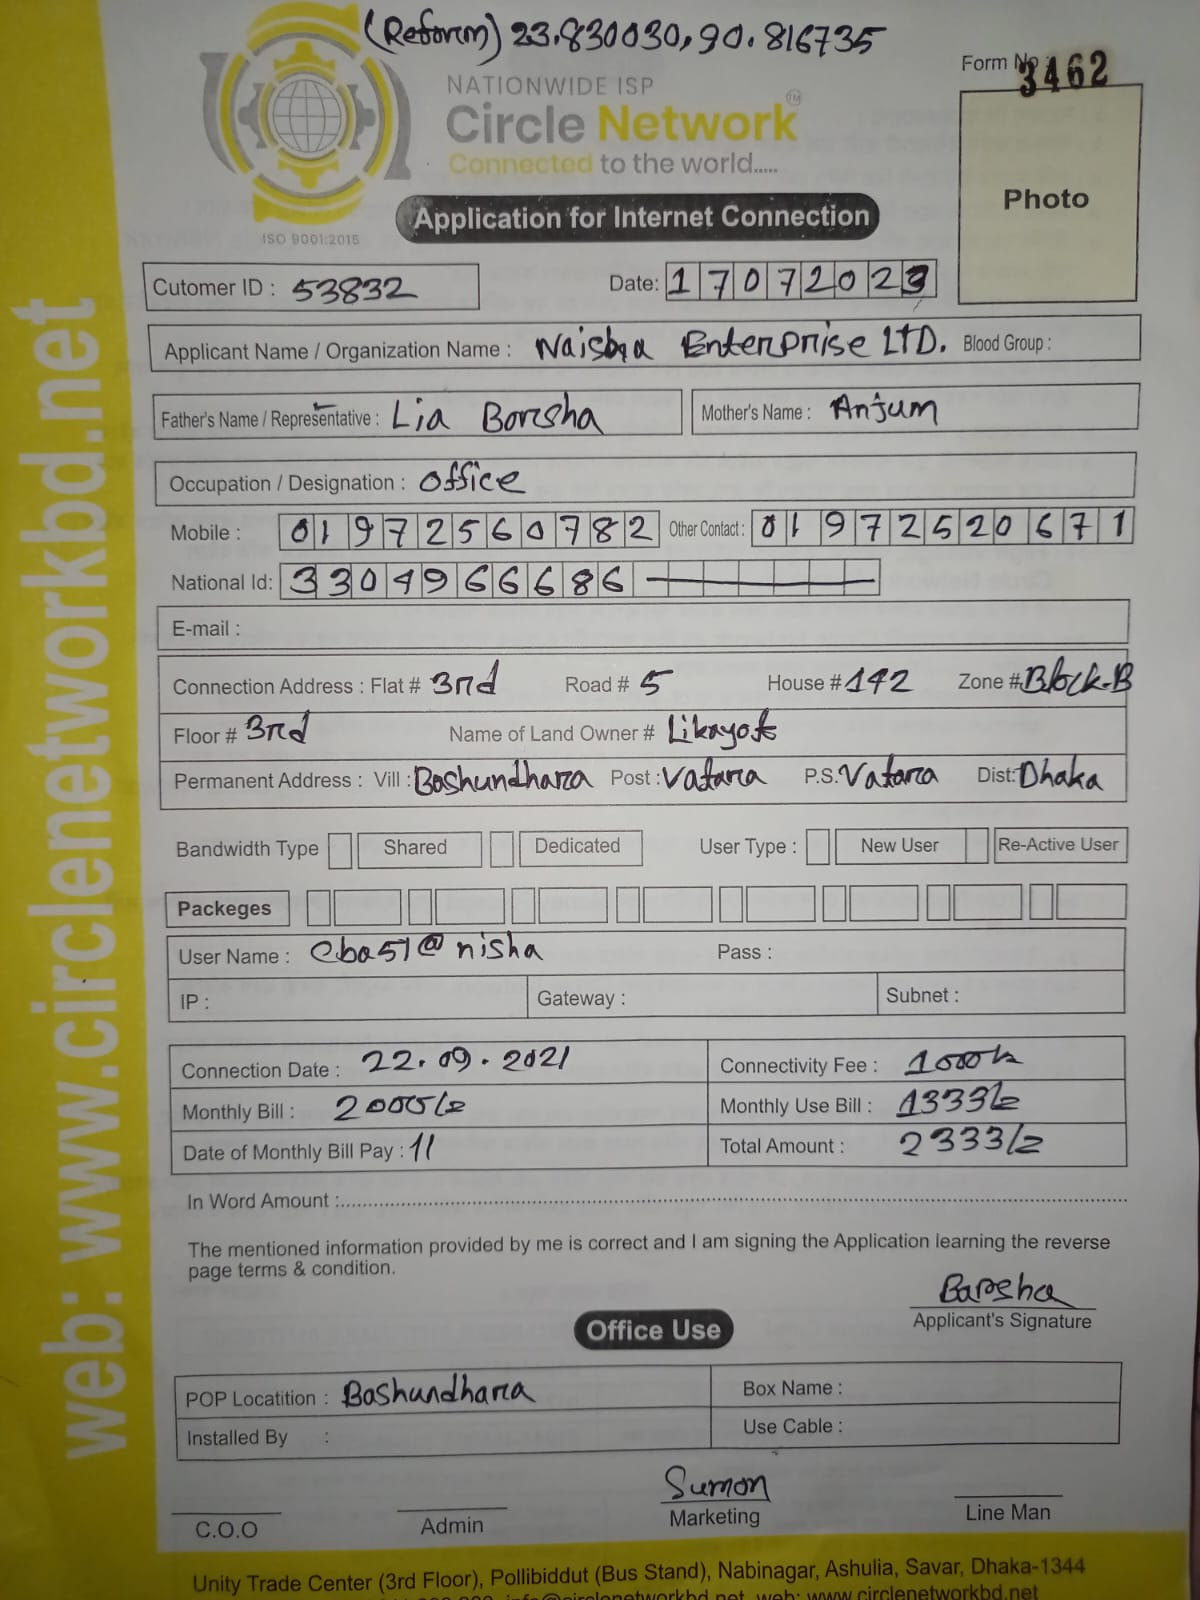 (Reform) 23.830030, 90.816735
Form No 3462
NATIONWIDE ISP
Circle Network TM
Connected to the world.....
ISO 9001:2015
Photo
Application for Internet Connection
Cutomer ID : 53832 Date: 17072023
Applicant Name / Organization Name : Naisha Enterprise LTD. Blood Group :
Father's Name / Representative : Lia Borsha Mother's Name : Anjum
Occupation / Designation : Office
Mobile : 01972560782 Other Contact : 01972520671
National Id: 3304966686
E-mail :
Connection Address : Flat # 3rd Road # 5 House # 142 Zone # Block-B
Floor # 3rd Name of Land Owner #
Permanent Address : Vill : Bashundhara Post : Vatara P.S. Vatara Dist: Dhaka
Bandwidth Type Shared Dedicated User Type : New User Re-Active User
Packeges
User Name : cba51@nisha Pass :
IP : Gateway : Subnet :
Connection Date : 22.09.2021 Connectivity Fee : 1000/=
Monthly Bill : 2000/= Monthly Use Bill : 1333/=
Date of Monthly Bill Pay : 11 Total Amount : 2333/=
In Word Amount :
The mentioned information provided by me is correct and I am signing the Application learning the reverse
page terms & condition.
Barsha
Applicant's Signature
Office Use
POP Locatition : Bashundhara Box Name :
Installed By : Use Cable :
Sumon
C.O.O Admin Marketing Line Man
Unity Trade Center (3rd Floor), Pollibiddut (Bus Stand), Nabinagar, Ashulia, Savar, Dhaka-1344
info@circlenetworkbd.net, web: www.circlenetworkbd.net
web: www.circlenetworkbd.net